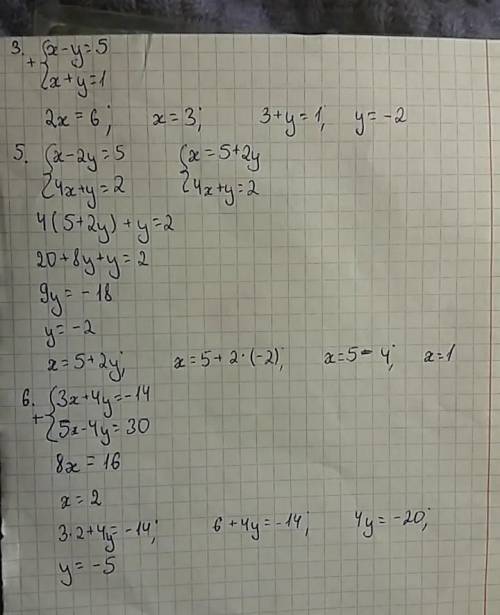 3. + { x-y=5
x+y=1
2x=6; x=3; 3+y=1; y=-2
5. { x-2y=5 { x=5+2y
4x+y=2 4x+y=2
4(5+2y)+y=2
20+8y+y=2
9y=-18
y=-2
x=5+2y; x=5+2·(-2); x=5-4; x=1
6. + { 3x+4y=-14
5x-4y=30
8x=16
x=2
3·2+4y=-14; 6+4y=-14; 4y=-20;
y=-5